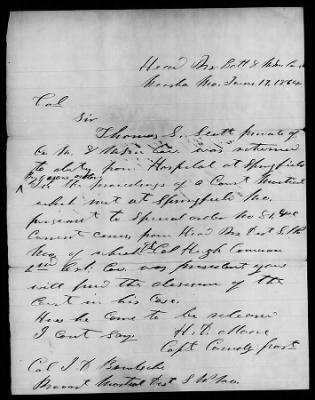 Head Qrs Batt 8 Mo
Neosho Mo. June 17. 1864
Col
Sir
Thomas S. Scott private of
Co M. 8 Cav was returned
to duty from Hospital at Springfield
by your order
the proceedings of a Court Martial
which met at Springfield Mo.
pursuant to Special order No
Current from Head Qrs Dist S W
Mo, of which Col Hugh Cameron
2nd Ark Cav. was president you
will find the decision of the
Court in his case.
How he come to be release
I cant say.
H. D. Moore
Capt Comdg Post
Col J. D.
Provost Marshal Dist S W Mo.